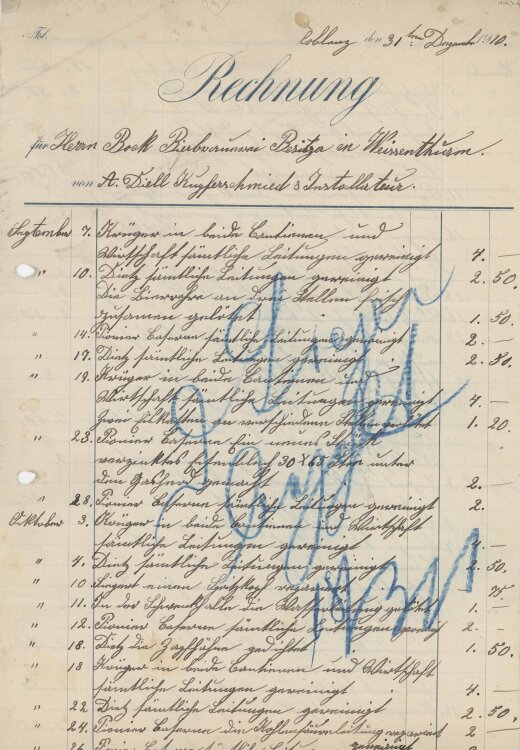 Fol.
Coblenz den 31 ten Dezemb. 1910.
Rechnung
für Herrn Bock Bierbrauerei Besitza in Weissenthurm.
von A. Diell Kupferschmied & Installateur.
September 7. Krüger in beide Cantienen und
Wirtschaft sämtliche Leitungen gereinigt 4. —
" 10. Dietz sämtliche Leitungen gereinigt 2. 50.
Die Bierrohre an drei Stellen frisch
zusamen gelötet 1. 50.
" 14. Pionier Caserne sämtliche Leitungen gereinigt 2. —
" 17. Dietz sämtliche Leitungen gereinigt 2. 50.
" 19. Krüger in beide Cantienen und
Wirtschaft sämtliche Leitungen gereinigt 4. —
zwei an verschiedene Stellen gelötet 1. 20.
" 23. Pionier Caserne Ein neues Stück
verzinktes Eisenblech 30 x 65 unter
den Gasherd gemacht 2. —
" 28. Pionier Caserne sämtliche Leitungen gereinigt 2.
Oktober 3. Krüger in beide Cantienen und Wirtschaft
sämtliche Leitungen gereinigt 4. —
" 4. Dietz sämtliche Leitungen gereinigt 2. 50.
" 10 einen Spitzkopf reparirt 75
" 11. In der die Wasserleitung gelötet 1. —
" 12. Pionier Caserne sämtliche Leitungen gereinigt 2. —
" 18. Dietz die Zapfhähne gedichtet 1. 50.
" 18 Krüger in beide Cantienen und Wirtschaft
sämtliche Leitungen gereinigt 4. —
" 22 Dietz sämtliche Leitungen gereinigt 2. 50,
" 24. Pionier Caserne die Kohlensäureleitung reparirt 2 —
" 26. gereinigt